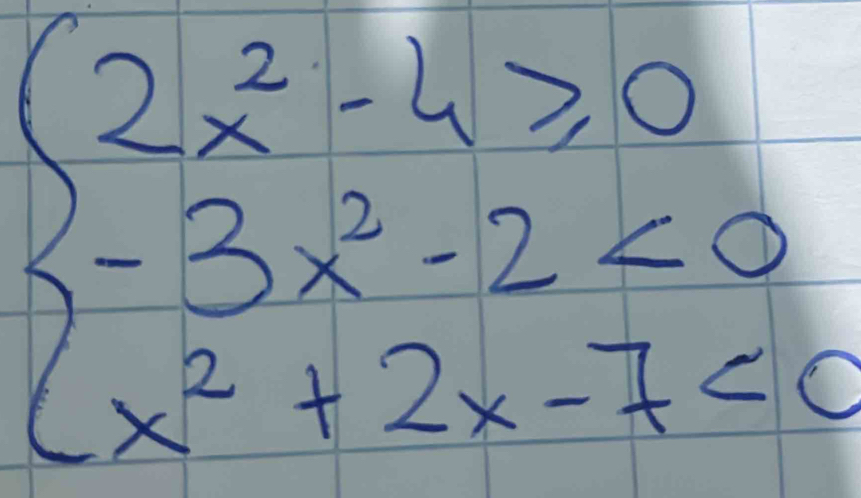 2x² - 4 ⩾ 0
- 3x² - 2 < 0
x² + 2x - 7 < 0